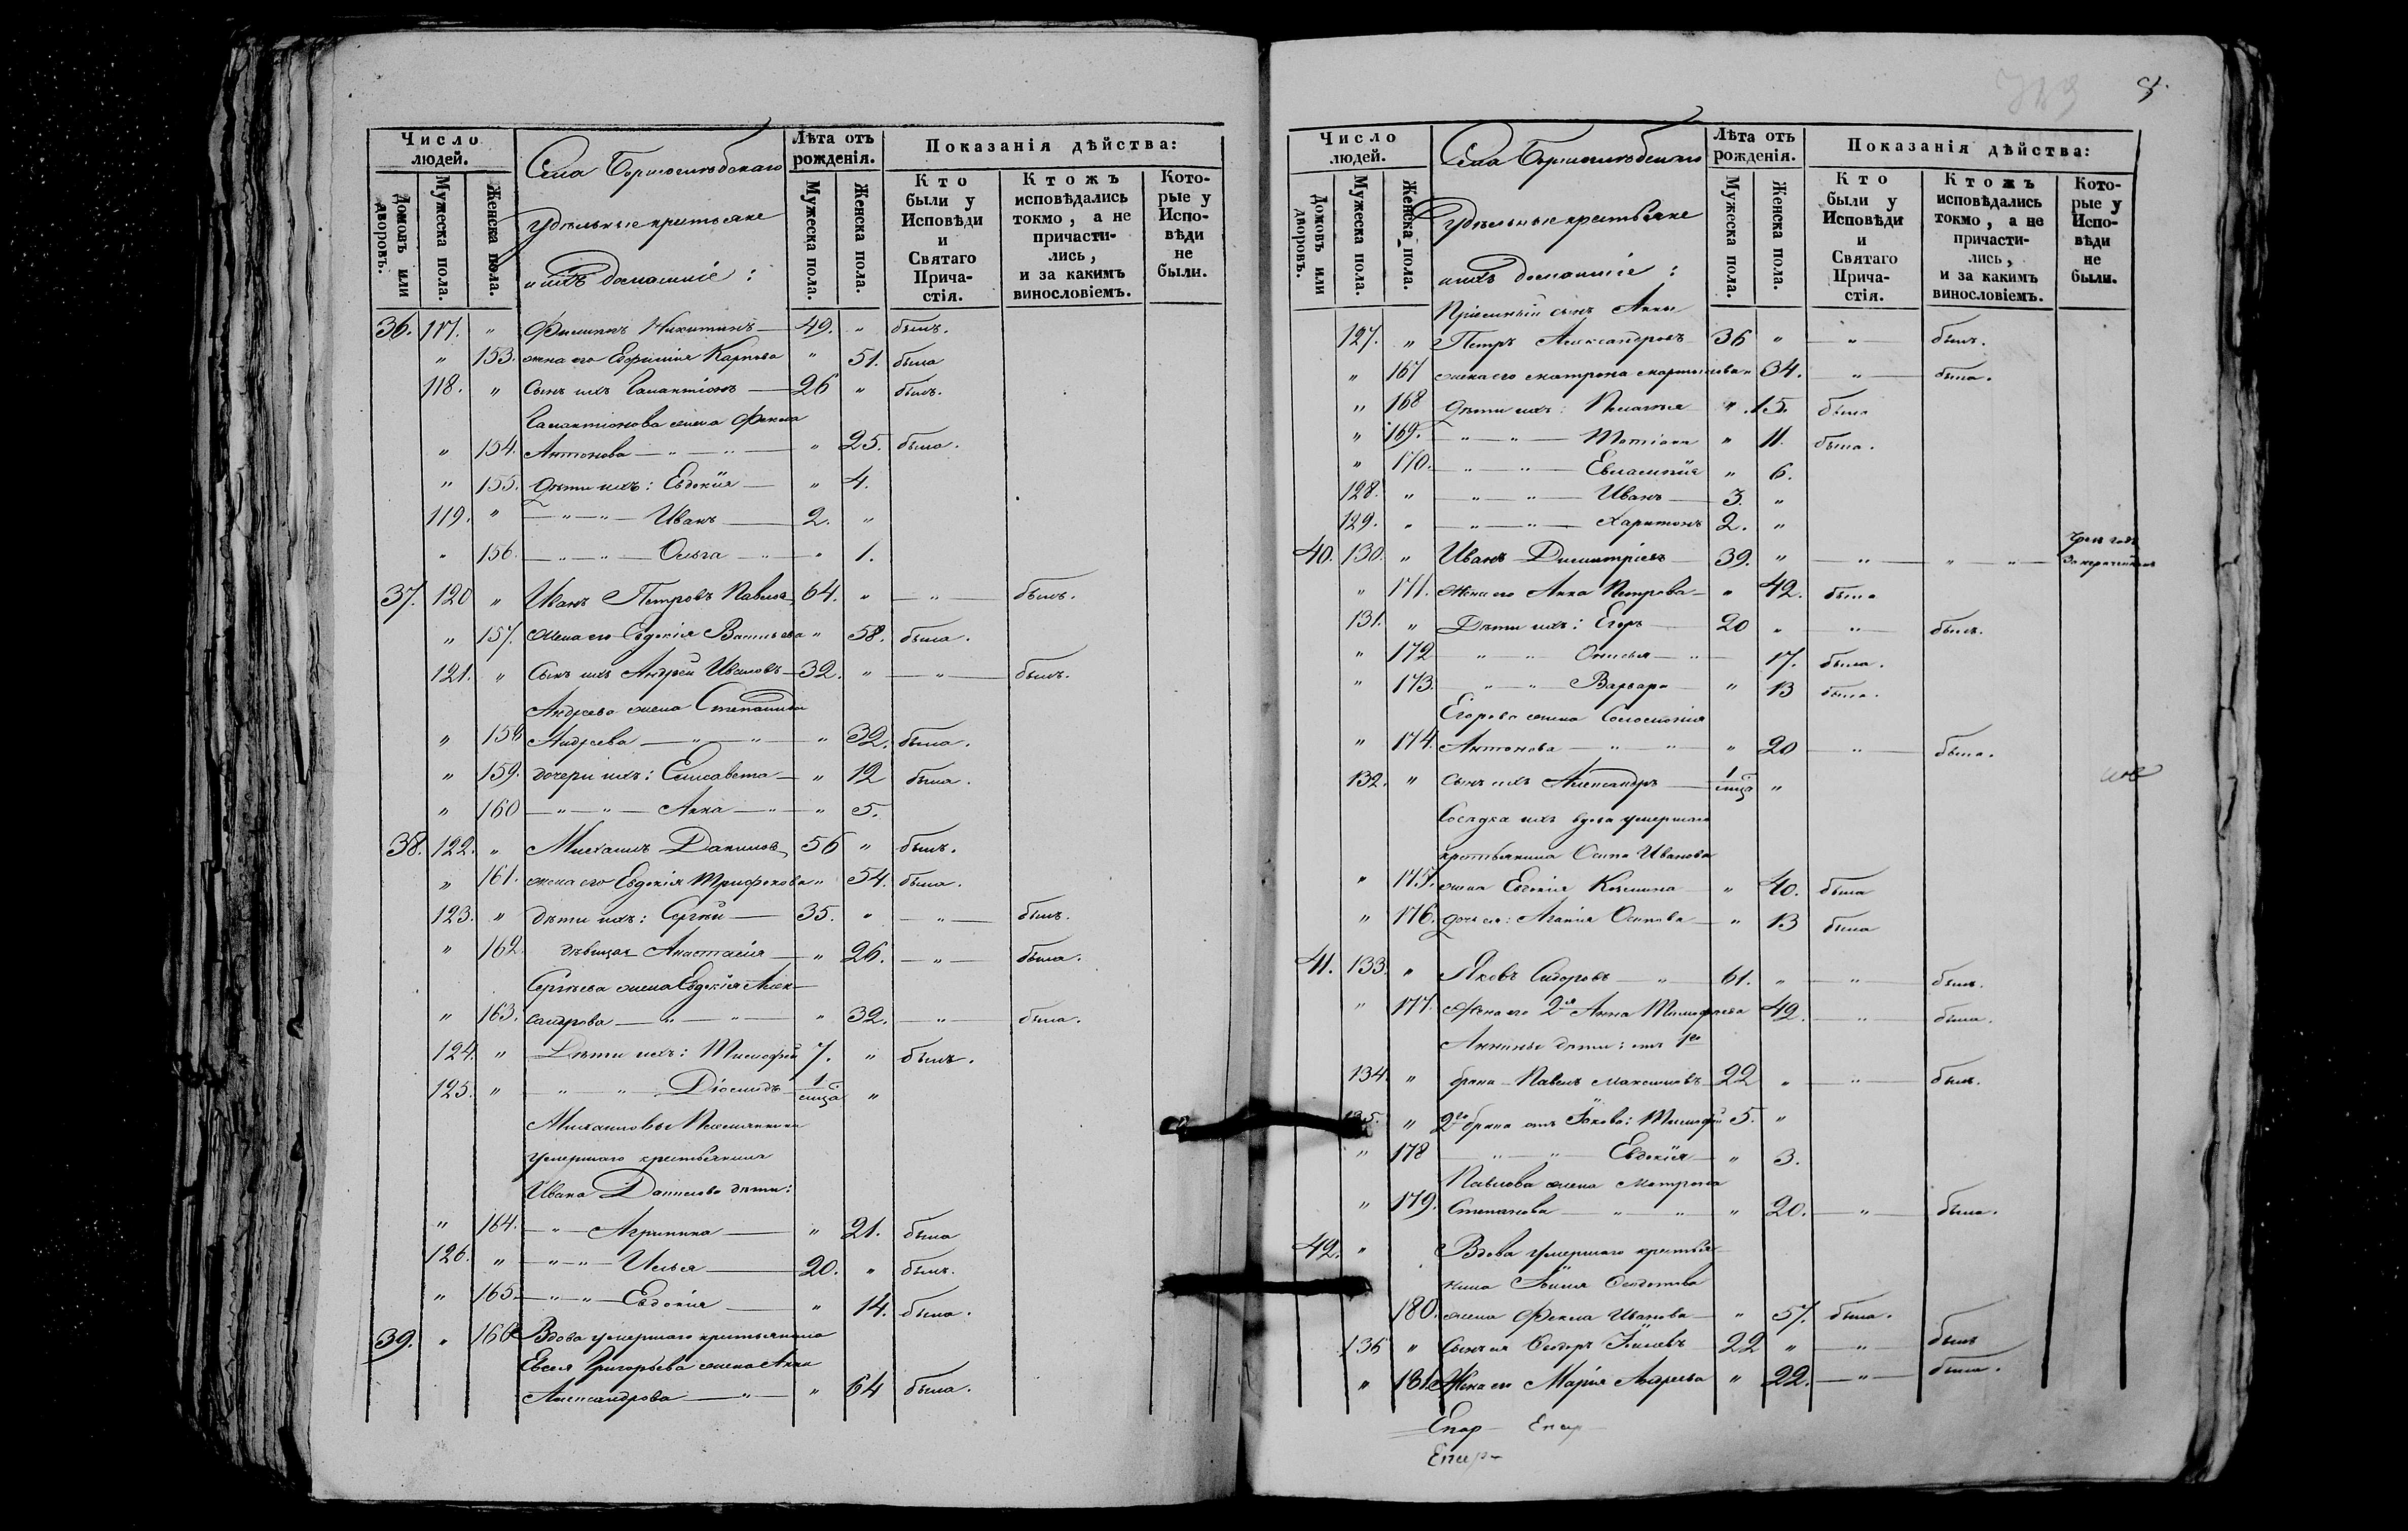 Число людей.
Домовъ или дворовъ.
Мужеска пола.
Женска пола.
Села Борисоглѣбскаго
удѣльные крестьяне
и ихъ домашніе:
Лѣта отъ рожденія.
Мужеска пола.
Женска пола.
Показанія дѣйства:
Кто были у Исповѣди и Святаго Прича-стія.
Ктожъ исповѣдались токмо, а не причасти-лись, и за какимъ винословіемъ.
Кото-рые у Испо-вѣди не были.
36. 117. " Филиппъ Никитинъ 49. " былъ.
" 153. жена его Евфимія Карпова " 51. была
118. " Сынъ ихъ Галактіонъ 26 " былъ.
Галактіонова жена Фекла
" 154. Антонова " 25. была.
" 155. Дѣти ихъ: Евдокія " 4.
119. " Иванъ 2. "
" 156. Ольга " 1.
37. 120 " Иванъ Петровъ Павловъ 64. " " былъ.
" 157. Жена его Евдокія Васильева " 58. была.
121. " Сынъ ихъ Андрей Ивановъ 32. " " былъ.
Андреева жена Степанида
" 158 Андреева " 32. была.
" 159. дочери ихъ: Елисавета " 12 была.
" 160 Анна " 5.
38. 122. " Михаилъ Даниловъ 56 " былъ.
" 161. жена его Евдокія Трифонова " 54. была.
123. " дѣти ихъ: Сергѣй 35. " " былъ.
" 162. дѣвица Анастасія " 26. " была.
Сергѣева жена Евдокія Алек-
" 163. сандрова " 32. " была.
124. " Дѣти ихъ: Тимофей 7. " былъ.
125. " Діомидъ 1 мца "
Михаиловы Племянники
умершаго крестьянина
Ивана Данилова дѣти:
" 164. Агрипина " 21. была
126. " Илья 20. " былъ.
" 165. Евдокія " 14. была.
39. " 166 Вдова умершаго крестьянина
Евсея Григорьева жена Анна
Александрова " 64 была.
Число людей.
Домовъ или дворовъ.
Мужеска пола.
Женска пола.
Села Борисоглѣбскаго
Удѣльные крестьяне
и ихъ домашніе:
Лѣта отъ рожденія.
Мужеска пола.
Женска пола.
Показанія дѣйства:
Кто были у Исповѣди и Святаго Прича-стія.
Ктожъ исповѣдались токмо, а не причасти-лись, и за какимъ винословіемъ.
Кото-рые у Испо-вѣди не были.
Пріемный сынъ Анны
127. " Петръ Александровъ 36 " " былъ.
" 167 жена его Матрона Мартынова " 34. " была.
" 168 Дѣти ихъ: Пелагея " 15. была
" 169. Татіана " 11. была.
" 170. Евлампія " 6.
128. " Иванъ 3. "
129. " Харитонъ 2. "
40. 130. " Иванъ Димитріевъ 39. " " "
" 171. Жена его Анна Петрова " 42. была
131. " Дѣти ихъ: Егоръ 20 " " былъ.
" 172 Онисья 17. была.
" 173. Варвара " 13 была.
Егорова жена Соломонія
" 174. Антонова " 20 " была.
132. " Сынъ ихъ Александръ 1 мца "
Сосѣдка ихъ вдова умершаго
крестьянина Осипа Иванова
" 175. жена Евдокія Козмина " 40. была
" 176. дочь ея: Агапія Осипова " 13 была
41. 133. " Яковъ Сидоровъ 61. " " былъ.
" 177. Жена его 2я Анна Тимофеева 49. " была.
Аннины дѣти: отъ 1го
134. " брака Павелъ Максимовъ 22 " " былъ.
135. " 2го брака отъ Якова: Тимофей 5. "
" 178 Евдокія " 3.
Павлова жена Матрона
" 179. Степанова " 20. " была.
42. " Вдова умершаго крестья-
нина Юлія Ѳедотова
180. жена Фекла Иванова " 57. была.
136 " Сынъ ея Ѳедоръ 22 " " былъ
" 181. Жена его Марія Андреева " 22. " была.
Епар Епар
Епар